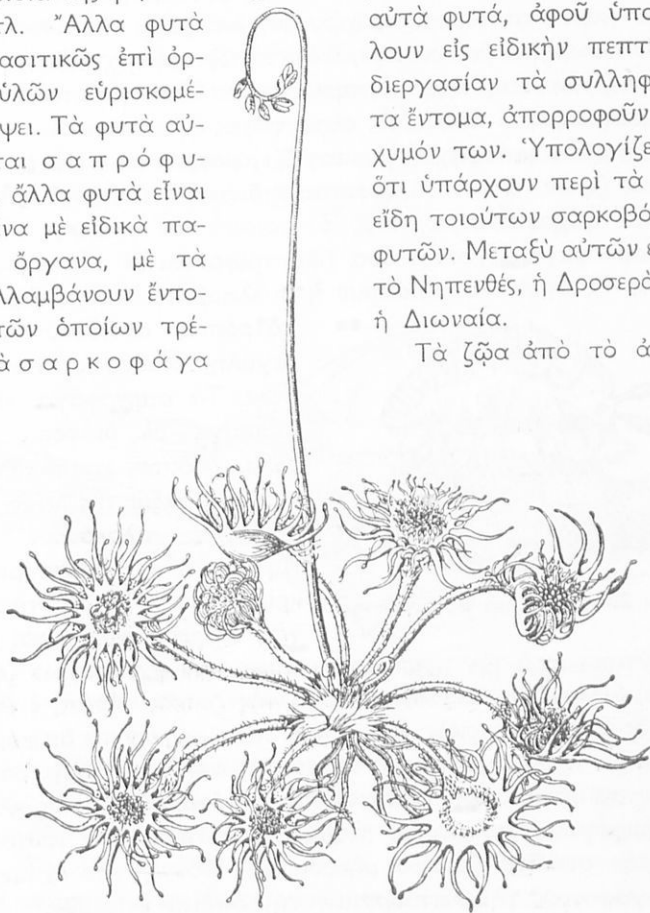 τλ. Ἄλλα φυτὰ
ασιτικῶς ἐπὶ ὀρ-
ὑλῶν εὑρισκομέ-
ψει. Τὰ φυτὰ αὐ-
ται σαπρόφυ-
ἄλλα φυτὰ εἶναι
να μὲ εἰδικὰ πα-
ὄργανα, μὲ τὰ
λλαμβάνουν ἔντο-
τῶν ὁποίων τρέ-
ὰ σαρκοφάγα
αὐτὰ φυτά, ἀφοῦ ὑπο
λουν εἰς εἰδικὴν πεπτ
διεργασίαν τὰ συλληφ
τα ἔντομα, ἀπορροφοῦν
χυμόν των. Ὑπολογίζε
ὅτι ὑπάρχουν περὶ τὰ
εἴδη τοιούτων σαρκοβό
φυτῶν. Μεταξὺ αὐτῶν ε
τὸ Νηπενθές, ἡ Δροσερὰ
ἡ Διωναία.
Τὰ ζῷα ἀπὸ τὸ ἀ